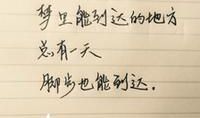 梦里能到达的地方
总有一天
脚步也能到达.